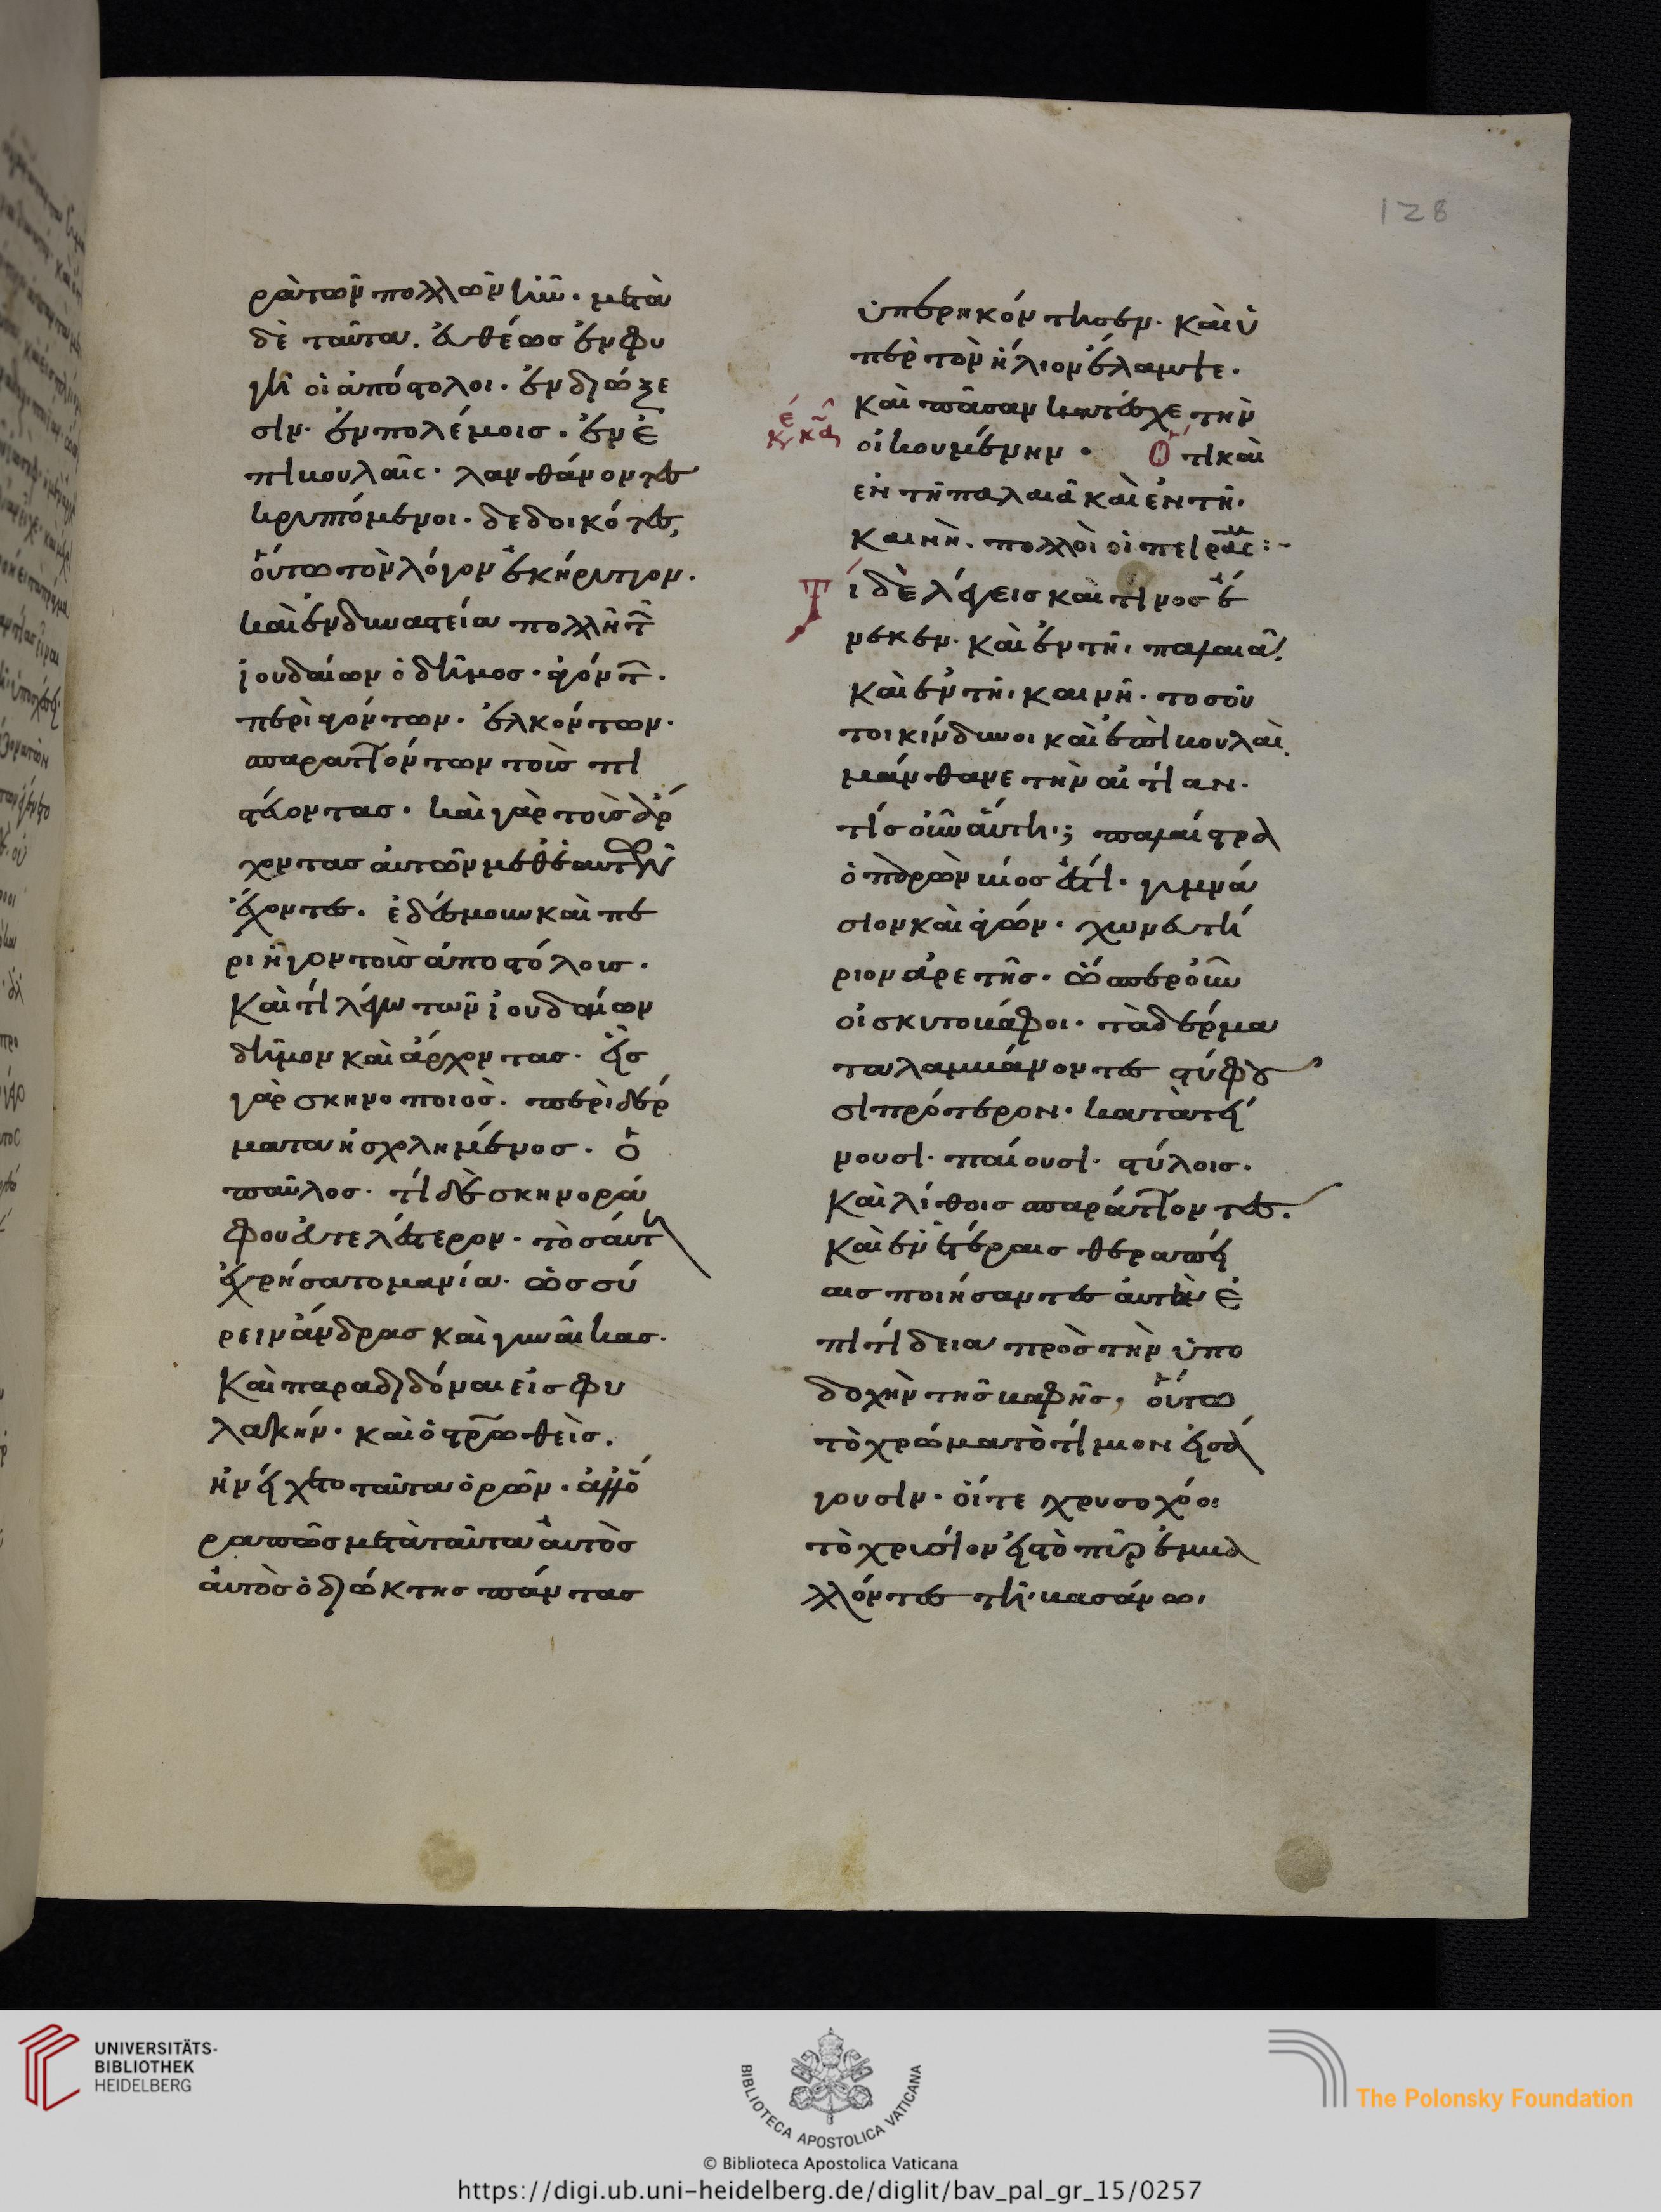 128
ρὰ τῶν πολλῶν ἦν· μετὰ
δὲ ταῦτα. εὐθέως ἐν φυ
γῆ οἱ ἀπόστολοι· ἐν διώξε
σιν· ἐν πολέμοις· ἐν ἐ
πιβουλαῖς· λανθάνοντες
κρυπτόμενοι· δεδοικότες,
οὕτω τὸν λόγον ἐκήρυττον·
καὶ ἐν δυναστεία πολλῆ τῶν
ἰουδαίων ὁ δῆμος· ἀγόντων·
περιαγόντων· ἑλκόντων·
σπαραττόντων τοὺς πι
στεύοντας· καὶ γὰρ τοὺς ἄρ
χοντας αὐτῶν μεθ' ἑαυτῶν
ἔχοντες. ἐδέσμουν καὶ πε
ριῆγον τοὺς ἀποστόλους.
καὶ τί λέγω τῶν ἰουδαίων
δῆμον καὶ ἄρχοντας· εἷς
γὰρ σκηνοποιὸς. περὶ δέρ
ματα ἠσχολημένος· ὁ
παῦλος· τί δὲ σκηνορά
φου εὐτελέστερον· τοσαύτη
ἐχρήσατο μανία· ὡς σύ
ρειν ἄνδρας καὶ γυναῖκας·
καὶ παραδιδόναι εἰς φυ
λακήν· καὶ ὁ σταυρωθεὶς.
ἠνείχετο ταῦτα ὁρῶν· ἀλλ' ὅ
ρα πῶς μετὰ ταῦτα αὐτὸς
αὐτὸς ὁ διώκτης πάντας
ὑπερηκόντισεν· καὶ ὑ
πὲρ τὸν ἥλιον ἔλαμψε·
καὶ πᾶσαν κατέσχε τὴν
οἰκουμένην· Ὅτι καὶ
ἐν τῆ παλαιᾶ καὶ ἐν τῆ
καινῆ. πολλοὶ οἱ πειρασμ:~
Τί δὲ λέγεις καὶ τίνος ἕ
νεκεν· καὶ ἐν τῆ παλαιᾶ
καὶ ἐν τῆ καινῆ· τοσοῦ
τοι κίνδυνοι καὶ ἐπιβουλαὶ.
μάνθανε τὴν αἰτίαν·
τίς οὖν αὕτη; παλαίστρα
ὁ παρὼν βίος ἐστί· γυμνά
σιον καὶ ἀγών· χωνευτή
ριον ἀρετῆς· ὥσπερ οὖν
οἱ σκυτοβάφοι· τὰ δέρμα
τα λαμβάνοντες στύφου
σι πρότερον· κατατεί
νουσι· παίουσι· στύλοις·
καὶ λίθοις σπαράττοντες.
καὶ ἐν ἑτέραις θεραπεί
αις ποιήσαντες αὐτὰ ἐ
πιτήδεια πρὸς τὴν ὑπο
δοχὴν τῆς βαφῆς, οὕτω
τὸ χρῶμα τὸ τίμιον εἰσά
γουσιν· οἵ τε χρυσοχόοι
τὸ χρισίον εἰς τὸ πῦρ ἐμβά
λλόντες τῆ βασάνω
UNIVERSITÄTS-
BIBLIOTHEK
HEIDELBERG
BIBLIOTECA APOSTOLICA VATICANA
© Biblioteca Apostolica Vaticana
The Polonsky Foundation
https://digi.ub.uni-heidelberg.de/diglit/bav_pal_gr_15/0257